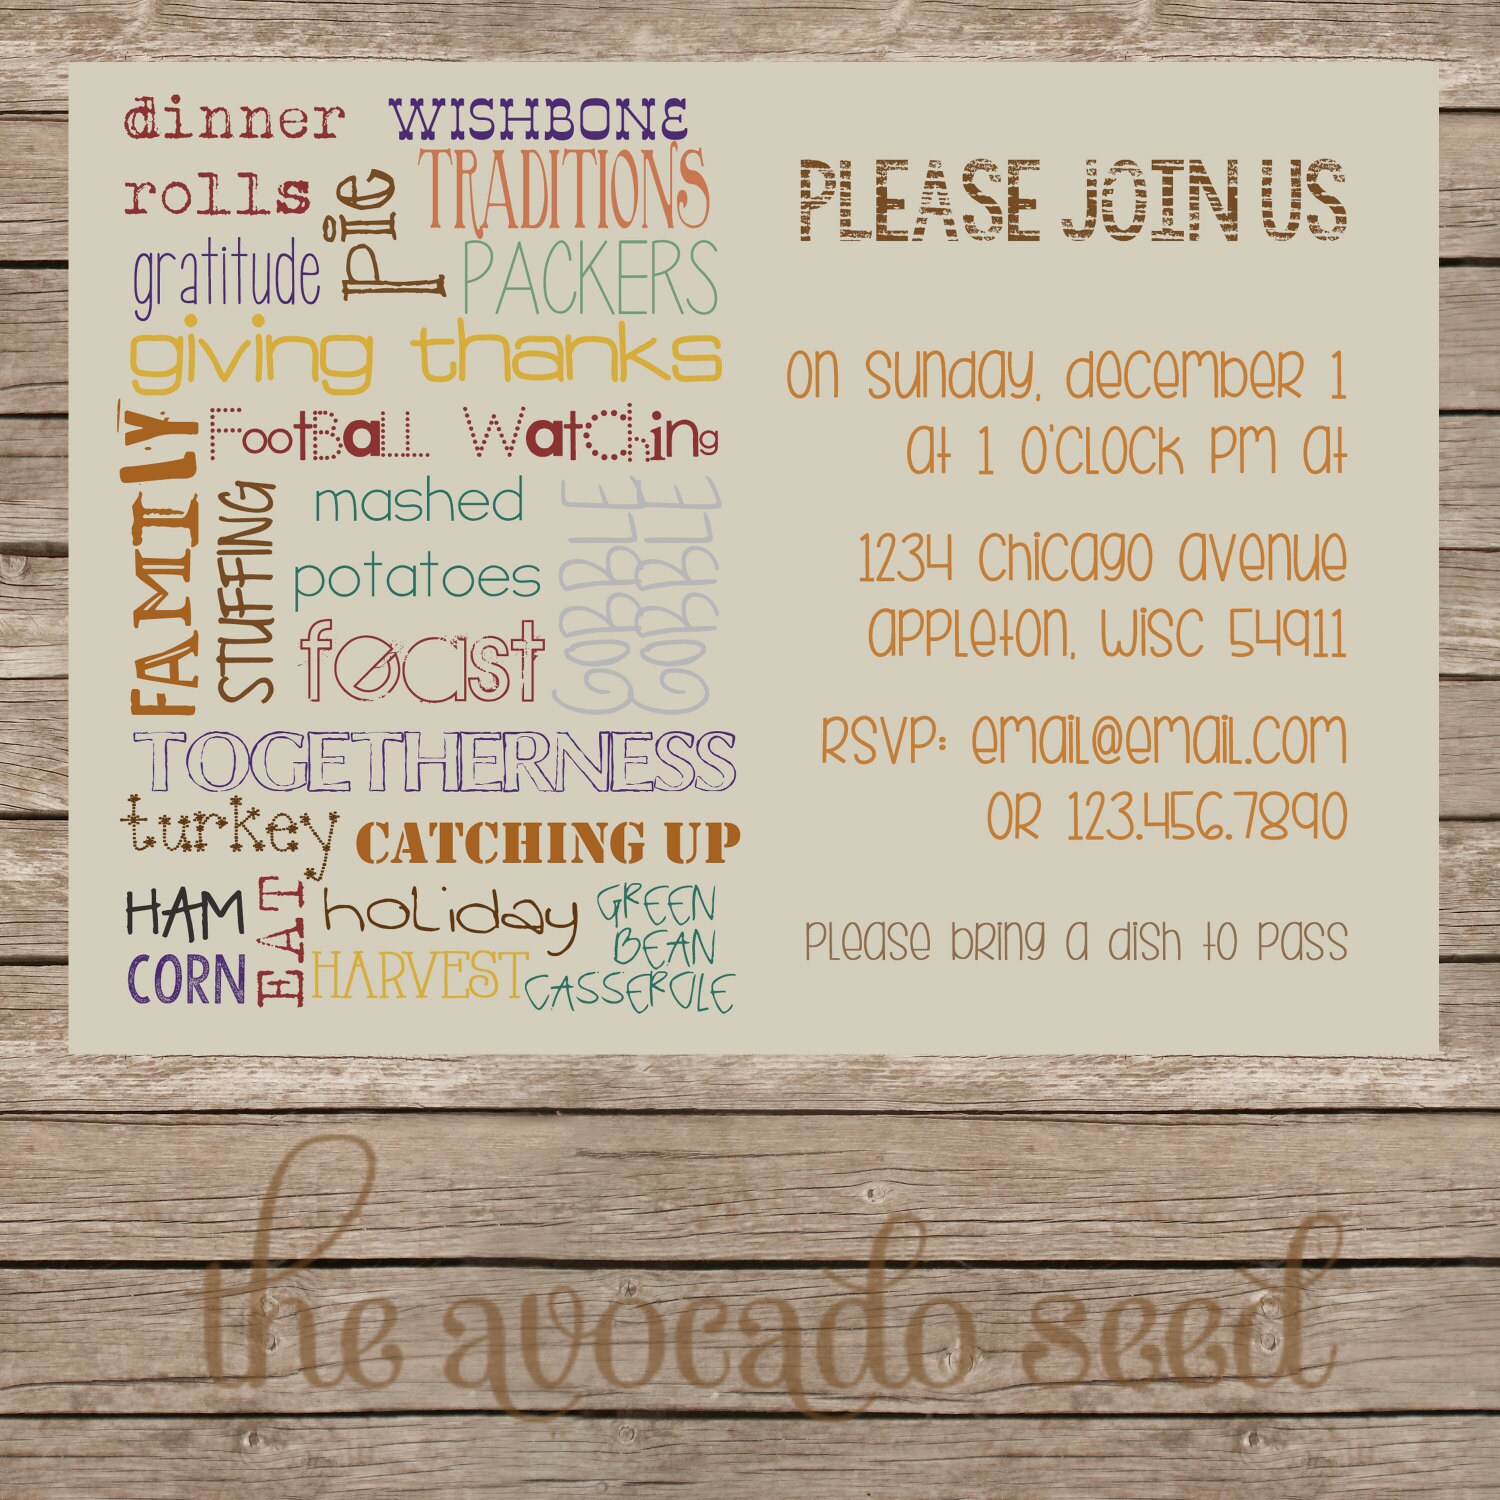 dinner
rolls
WISHBONE
PIE
TRADITIONS
gratitude
PACKERS
giving thanks
FAMILY
FootBaLL WatChing
STUFFING
mashed
potatoes
GOBBLE
GOBBLE
feast
TOGETHERNESS
turkey
CATCHING UP
HAM
CORN
EAT
holiday
HARVEST
GREEN
BEAN
CASSEROLE
PLEASE JOIN US
on sunday, december 1
at 1 o'clock pm at
1234 chicago avenue
appleton, wisc 54911
rsvp: email@email.com
or 123.456.7890
please bring a dish to pass
the avocado seed